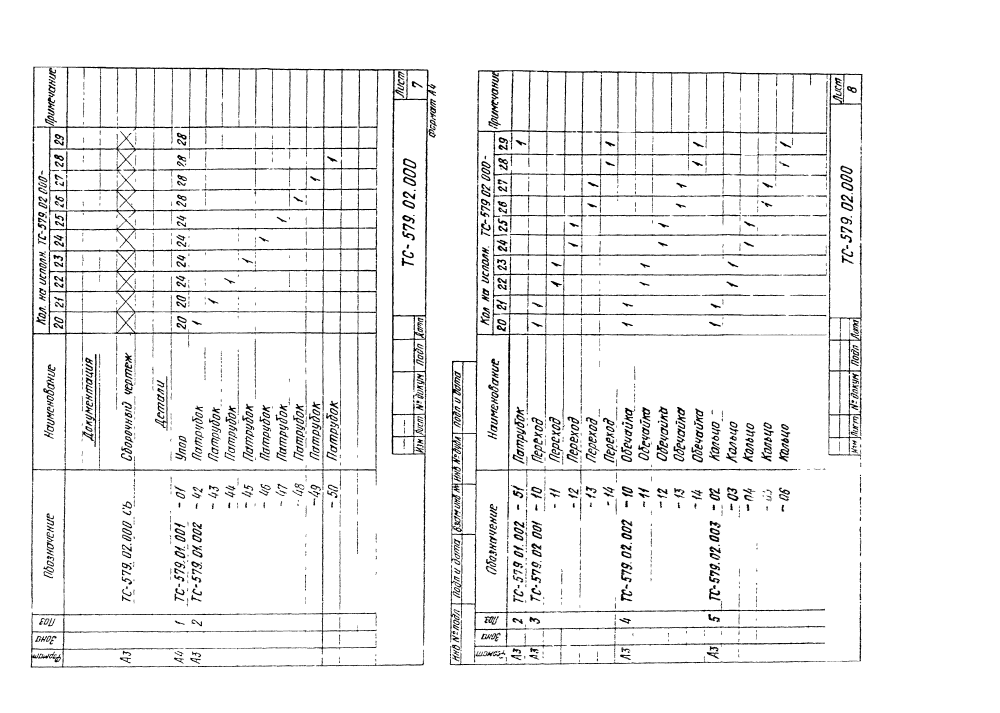 Формат Зона Поз Обозначение Наименование Кол. на исполн. ТС-579.02.000- Примечание
20 21 22 23 24 25 26 27 28 29
Документация
А3 ТС-579.02.000 СЬ Сборочный чертеж
Детали
А4 1 ТС-579.01.001 - 01 Упор 20 20 24 24 24 24 28 28 28 28
А3 2 ТС-579.01.002 - 42 Патрубок 1
- 43 Патрубок 1
- 44 Патрубок 1
- 45 Патрубок 1
- 46 Патрубок 1
- 47 Патрубок 1
- 48 Патрубок 1
- 49 Патрубок 1
- 50 Патрубок 1
Изм Лист № докум Подп Дата
ТС-579.02.000
Лист
7
Формат А4
Инв № подл Подп и дата Взам инв № Инв № дубл Подп и дата
Формат Зона Поз Обозначение Наименование Кол на исполн. ТС-579 02 000- Примечание
20 21 22 23 24 25 26 27 28 29
А3 2 ТС-579.01.002 - 51 Патрубок 1
А3 3 ТС-579.02 001 - 10 Переход 1 1
- 11 Переход 1 1
- 12 Переход 1 1
- 13 Переход 1 1
- 14 Переход 1 1
А3 4 ТС-579.02.002 - 10 Обечайка 1 1
- 11 Обечайка 1 1
- 12 Обечайка 1 1
- 13 Обечайка 1 1
- 14 Обечайка 1 1
А3 5 ТС-579.02.003 - 02 Кольцо 1 1
- 03 Кольцо 1 1
- 04 Кольцо 1 1
- 05 Кольцо 1 1
- 06 Кольцо 1 1
Изм Лист № докум Подп Дата
ТС-579.02.000
Лист
8